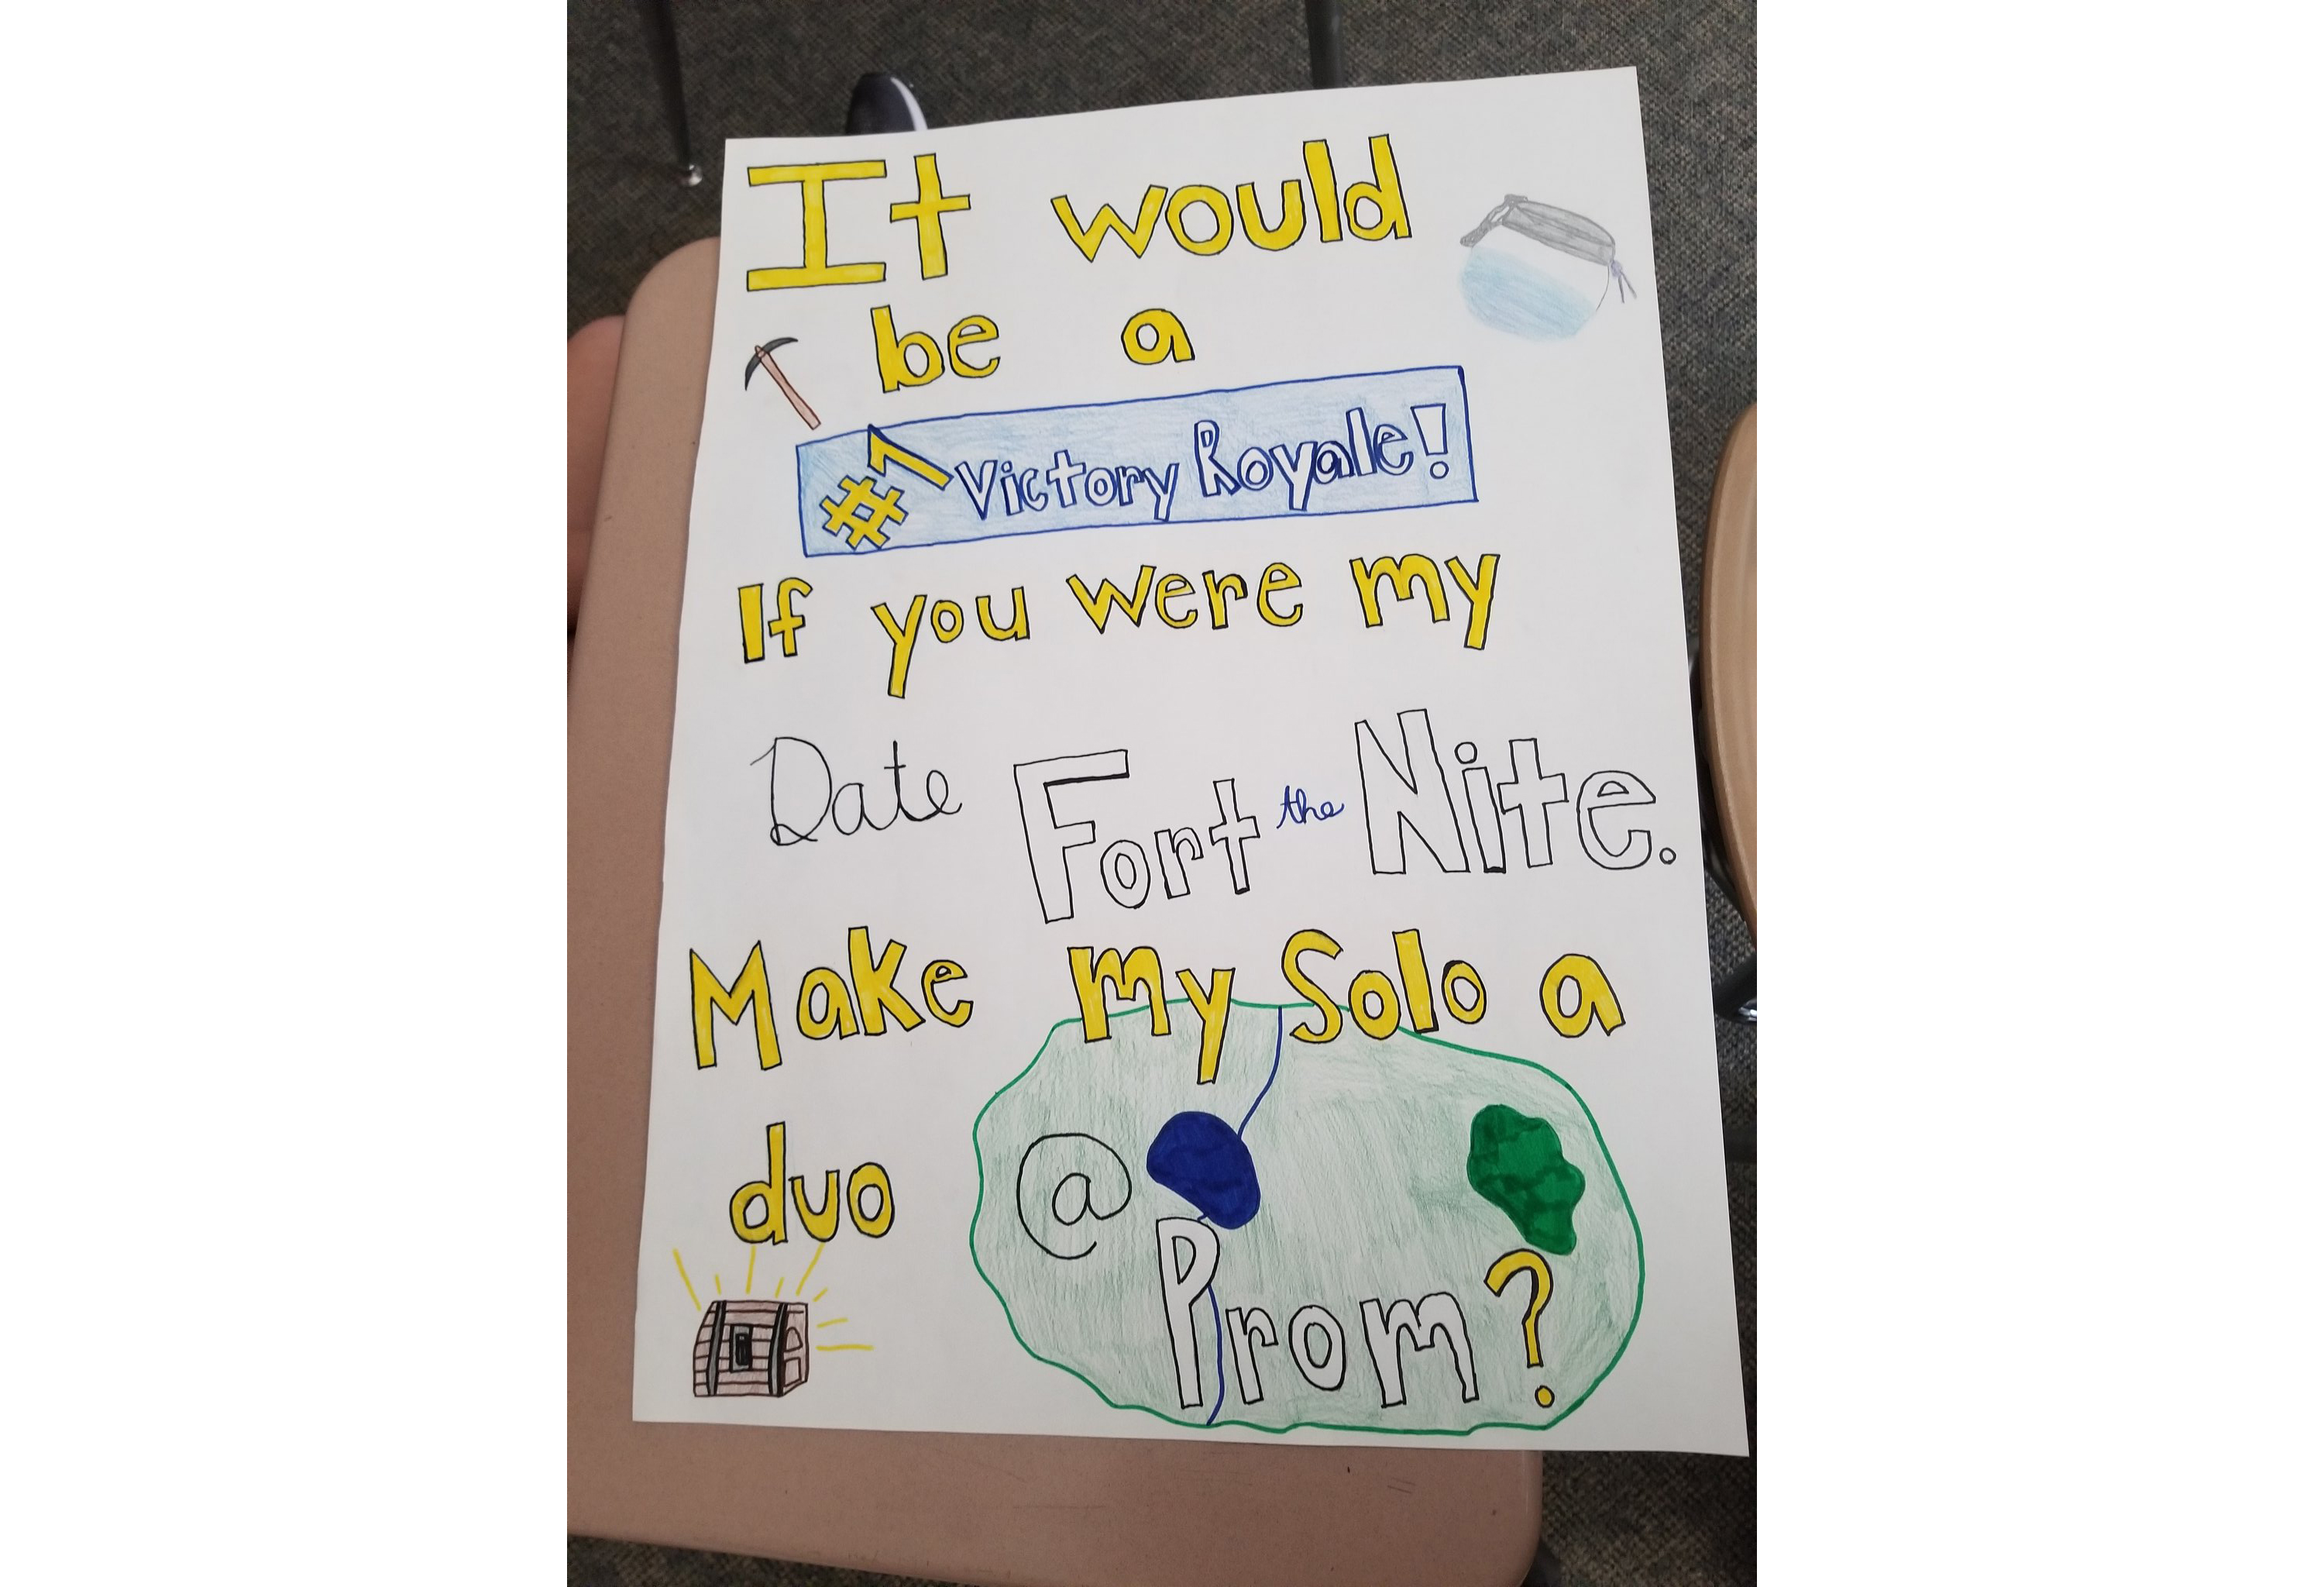 It would
be a
#1 Victory Royale!
If you were my
Date Fort the Nite.
Make my Solo a
duo @
Prom?